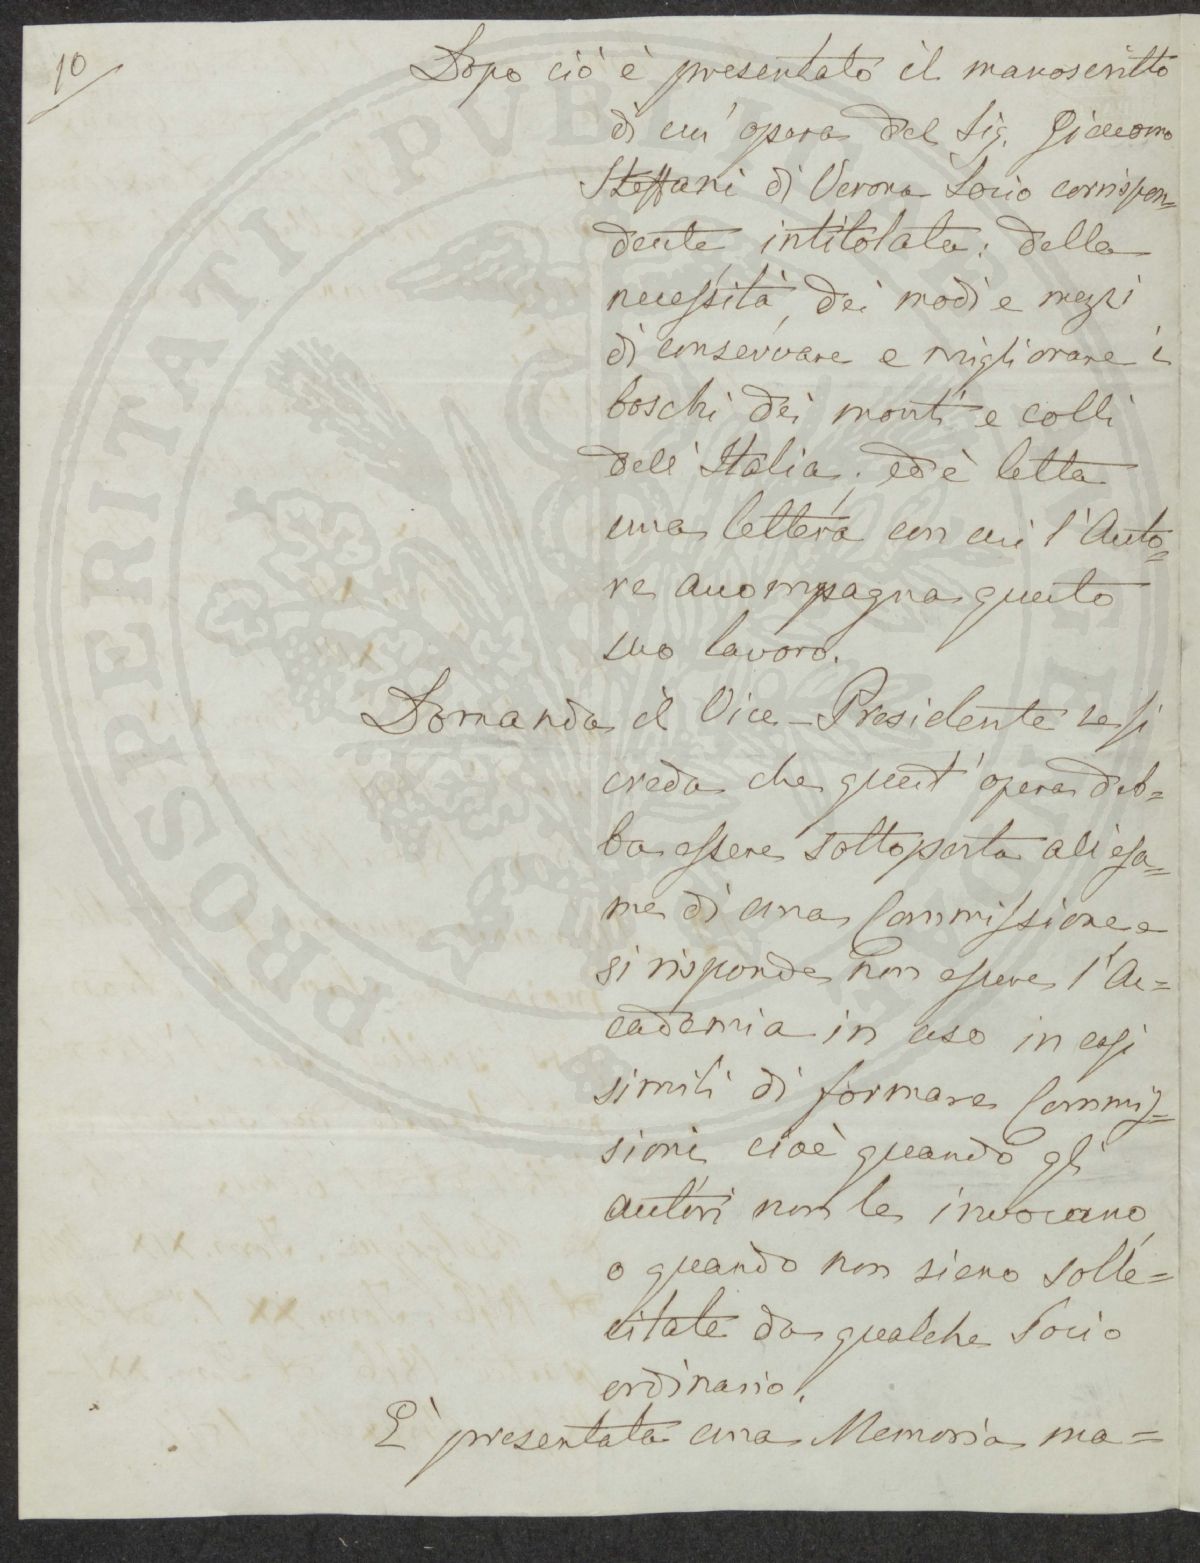 10
Dopo ciò è presentato il manoscritto
di un' opera del Sig. Giacomo
Steffani di Verona Socio corrispon=
dente intitolata: della
necessità, dei modi e mezzi
di conservare e migliorare i
boschi dei monti e colli
dell' Italia; ed è letta
una lettera con cui l' Auto=
re accompagna questo
suo lavoro.
Domanda il Vice-Presidente se si
creda che quest' opera deb=
ba essere sottoposta all' esa=
me di una Commissione, e
si risponde non essere l' Ac=
cademia in uso in casi
simili di formare Commis=
sioni cioè quando gli
autori non le invocano,
o quando non sieno solle=
citate da qualche Socio
ordinario.
E' presentata una Memoria ma=
PROSPERITATI PUBLICAE